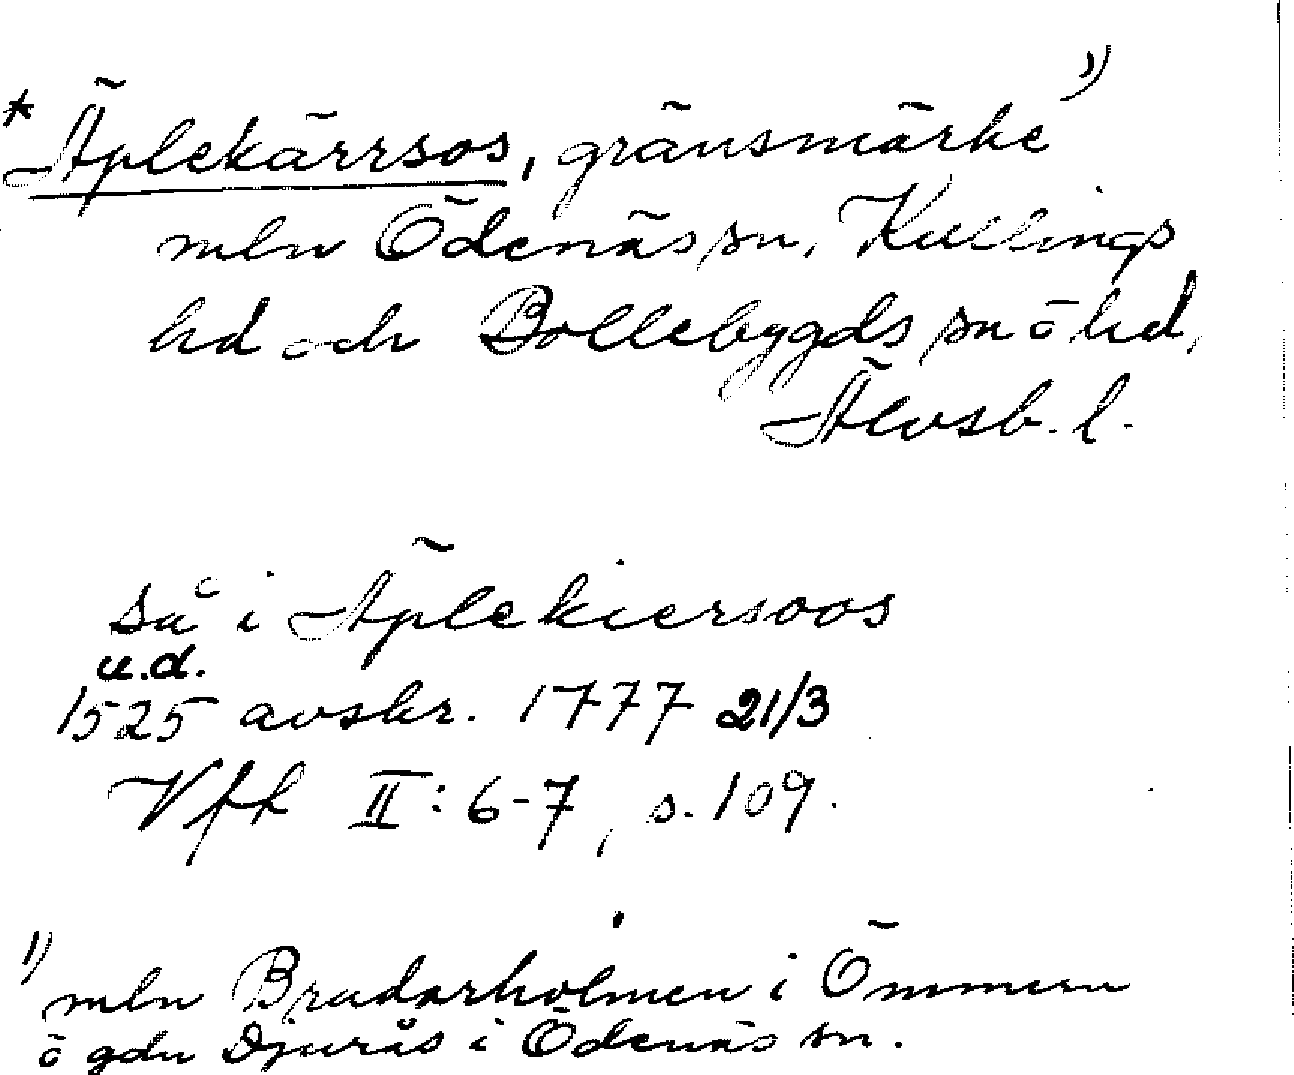 * Äplekärrsos, gränsmärke 1)
mln Ödenäs sn, Kullings
hd och Bollebygds sn ö hd,
Älvsb. l.
så i Äplekiersoos
u.d.
1525 avskr. 1777 21/3
Vfk II: 6-7, s. 109.
1) mln Brudarholmen i Ömmern
ö gdn Djurås i Ödenäs sn.